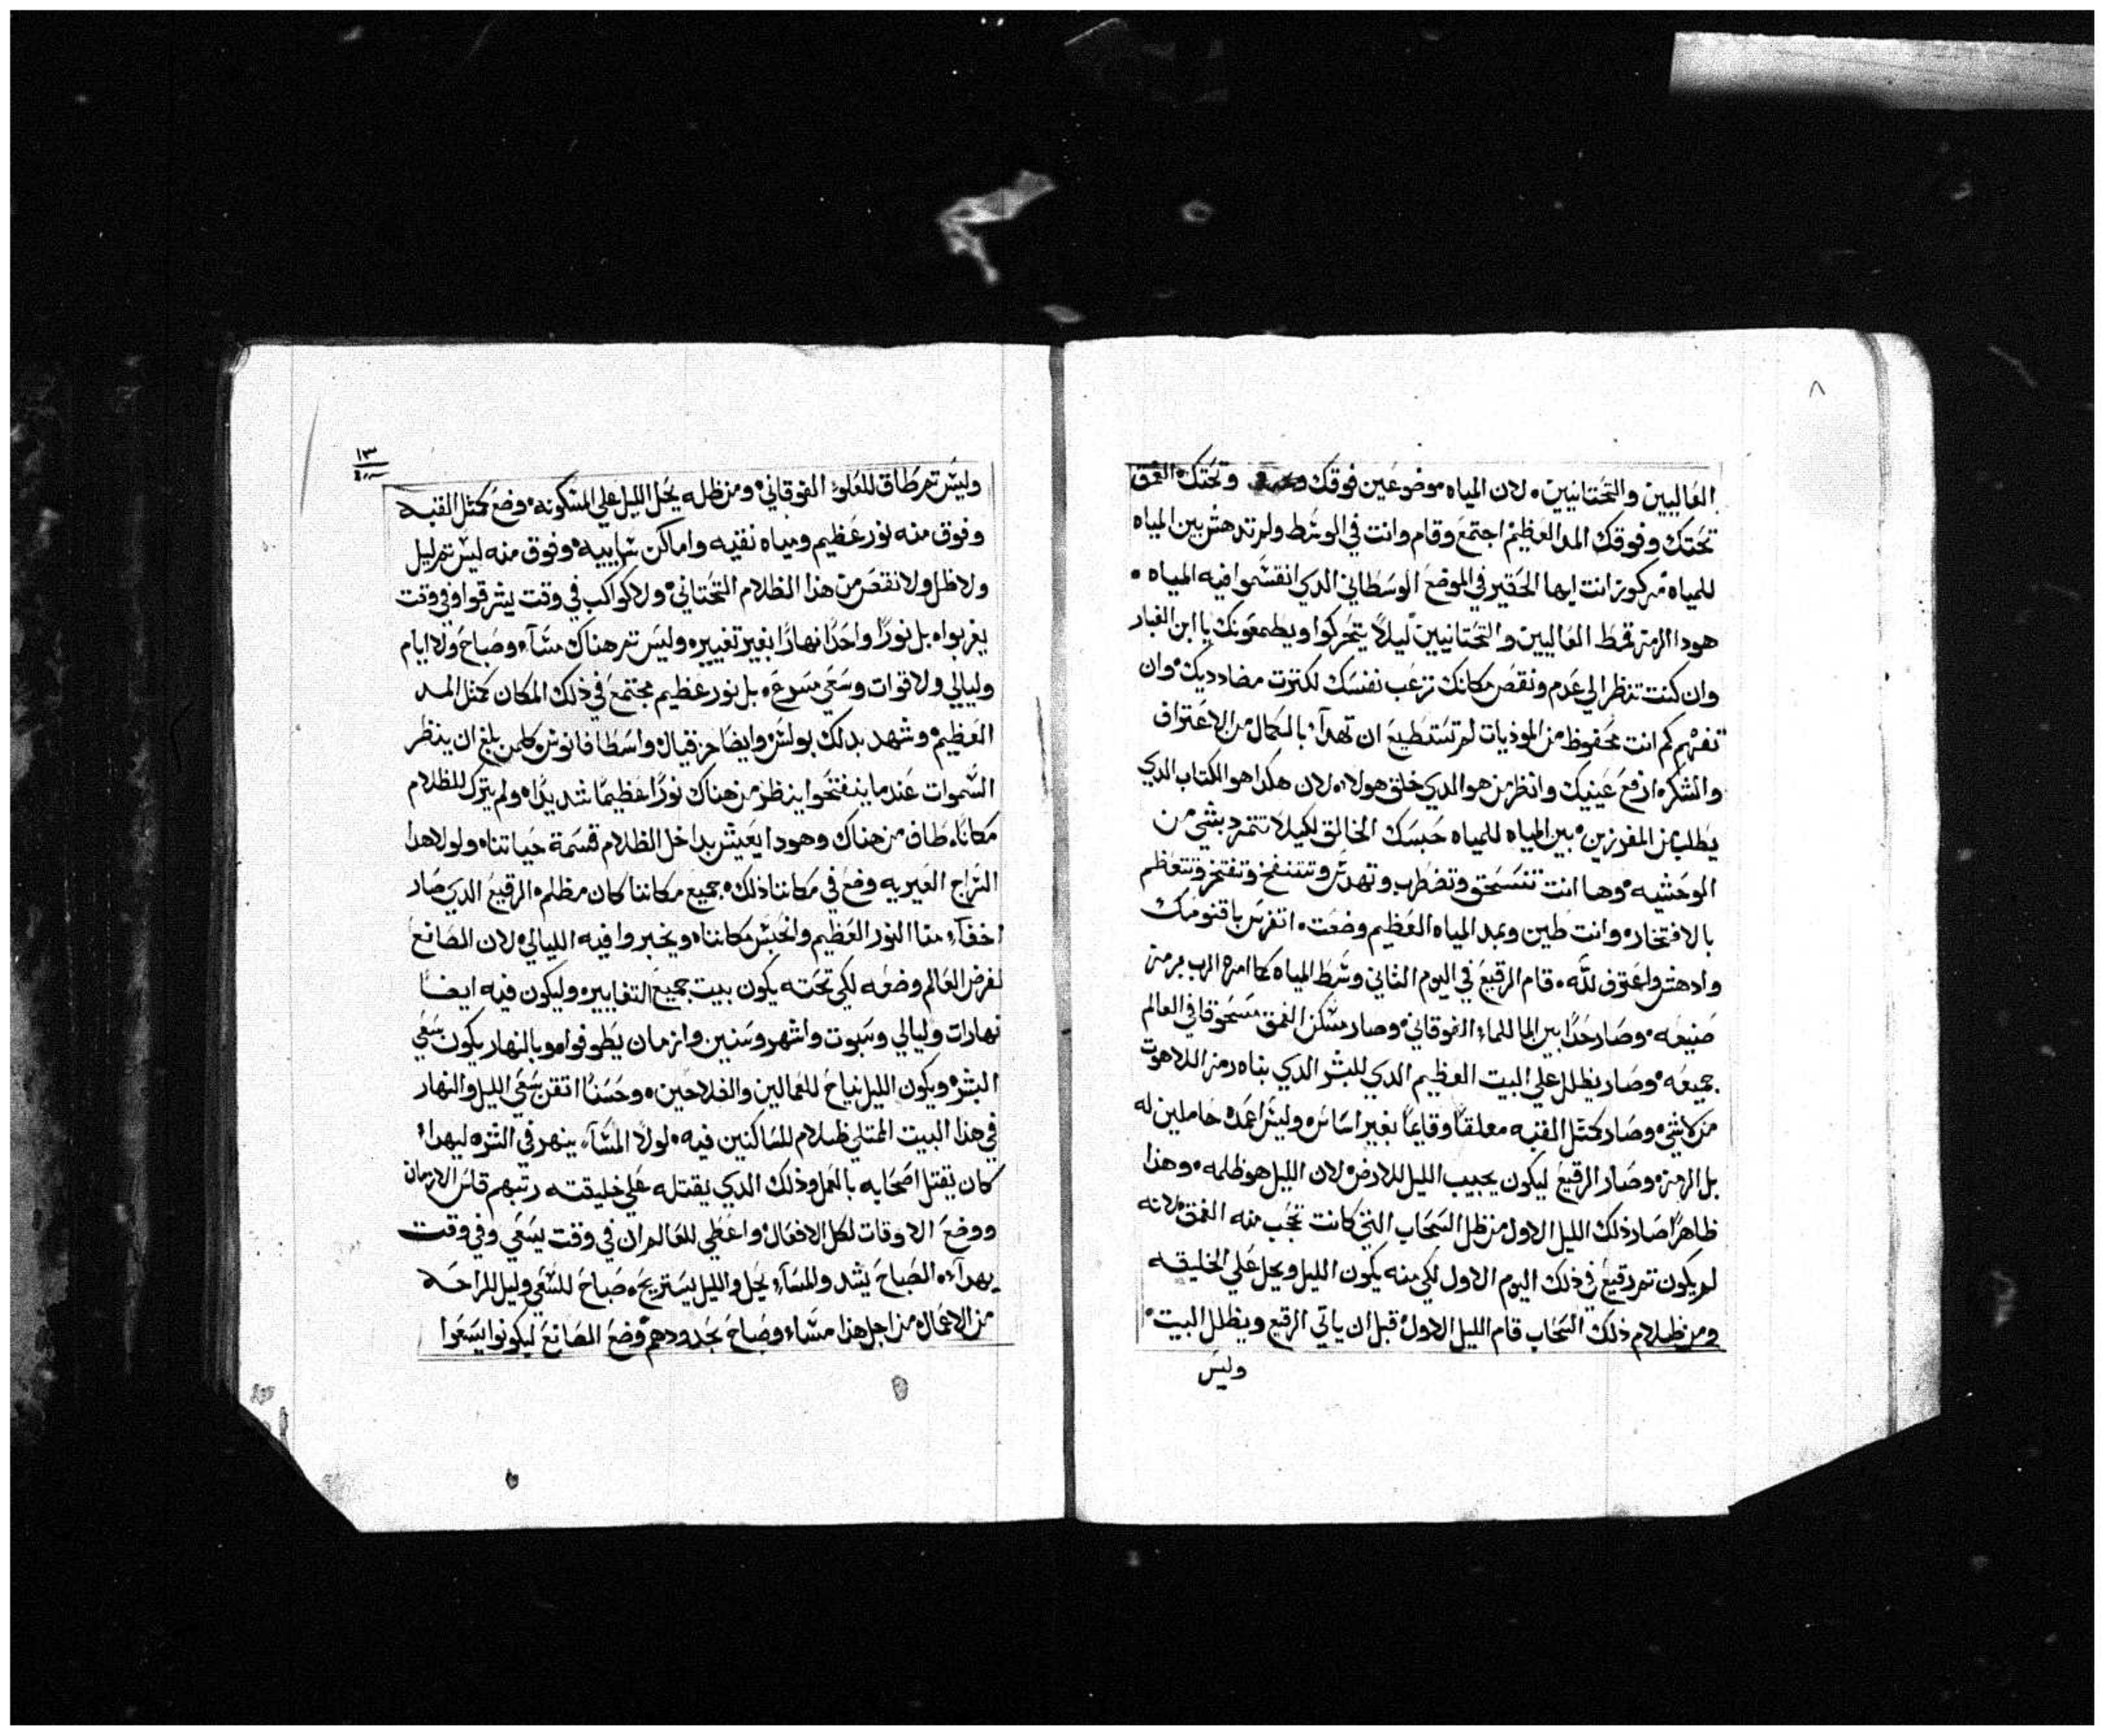 ٨
العاليين والتحتانيين. لان المياه موضوعين فوقك وتحتك العمق
تحتك وفوقك المد العظيم اجتمع وقام وانت في الوسط ولم تدهش بين المياه
للمياه مركوز انت ايها الحقير في الموضع الوسطاني الدي انقسموا فيه المياه.
هودا الرمز قحط العاليين والتحتانيين ليلا يتحركوا ويطمعونك يا ابن الغبار
وان كنت تنظر الي عدم ونقص مكانك تزعب نفسك لكترت مضادديك وان
تفهم كم انت محفوظ من الموديات لم تستطيع ان تهدآ بالكمال من الاعتراف
والشكر. ارفع عينيك وانظر من هو الدي خلق هولاء لان هكدا هو الكتاب الدي
يطلب من المفرزين بين المياه للمياه حبسك الخالق لكيلا تتمرد بشي من
الوحشيه. وها انت تنسحق وتضطرب وتهدس وتنتفخ وتفتخر وتتعظم
بالافتخار وانت طين وبمد المياه العظيم وضعت. اتفرس باقنومك
وادهش واعترف لله. قام الرقيع في اليوم التاني وسط المياه كما امره الرب برمز
صنيعه. وصار حدا بين الما للماء الفوقاني وصار مسكن العمق مسحوقا في العالم
جميعه وصار يظلل علي البيت العظيم الدي للبشر الدي بناه رمز اللاهوت
من لا شي وصار كمتل القبه معلقا وقايما بغير اساس وليس اعمده حاملين له
بل الرمز وصار الرقيع ليكون يجيب الليل للارض لان الليل هو ظلمه. وهذا
ظاهرا صار ذلك الليل الاول من ظل السحاب التي كانت تحجب منه العمق لانه
لم يكون تم رقيع في ذلك اليوم الاول لكي منه يكون الليل ويحل علي الخليقه
ومن ظلام ذلك السحاب قام الليل الاول قبل ان ياتي الرقيع ويظلل البيت
وليس
١٣
وليس تم طاق للعلو الفوقاني ومن ظله يحل الليل علي المسكونه وضع كمتل القبه
وفوق منه نور عظيم ومياه نقيه واماكن وفوق منه ليس تم ليل
ولا ظل ولا نقص من هذا الظلام التحتاني ولا كواكب في وقت يشرقوا وفي وقت
يغربوا بل نورا واحدا نهارا بغير تغيير وليس تم هناك مسآء وصباح ولا ايام
وليالي ولا قوات وسعي مسرع. بل نور عظيم مجتمع في ذلك المكان كمتل المد
العظيم وشهد بدلك بولس وايضا حزقيال واسطافانوس كلمن بلغ ان ينظر
السموات عندما ينفتحوا ينظر من هناك نورا عظيما شديدا ولم يترك للظلام
مكانا طاف من هناك وهودا يعيش بداخل الظلام قسمة حياتنا ولولا هدا
السراج العيريه وضع في مكاننا ذلك جميع مكاننا كان مظلم الرقيع الدي صار
اخفآء منا النور العظيم وانحبس مكاننا ويخبروا فيه الليالي لان الصانع
لغرض العالم وضعه لكي تحته يكون بيت جميع التغايير وليكون فيه ايضا
نهارات وليالي وسبوت واشهر وسنين وازمان يطوفوا وبالنهار يكون سعي
البشر ويكون الليل نياح للعمالين والفلاحين وحسنا اتقن سعي الليل والنهار
في هذا البيت الممتلي ظلام للساكنين فيه لولا المسآء ينهر في الشره ليهدا
كان يقتل اصحابه بالعمل وذلك الدي يقتله علي خليقته رتبهم قاس الازمان
ووضع الاوقات لكل الافعال واعطي للعالم ان في وقت يسعي وفي وقت
يهدآ. الصباح يشد والمسآء يحل والليل يستريح صباح للسعي وليل للراحه
من الاعمال من اجل هذا مساء وصباح بحدودهم وضع الصانع ليكونوا يسعوا